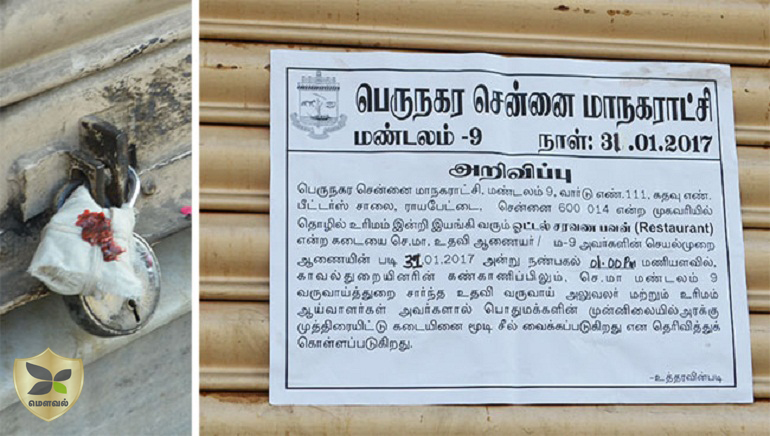 பெருநகர சென்னை மாநகராட்சி
மண்டலம் -9 நாள்: 31.01.2017
அறிவிப்பு
பெருநகர சென்னை மாநகராட்சி, மண்டலம் 9, வார்டு எண்.111, கதவு எண்.
பீட்டர்ஸ் சாலை, ராயபேட்டை, சென்னை 600 014 என்ற முகவரியில்
தொழில் உரிமம் இன்றி இயங்கி வரும் ஓட்டல் சரவண பவன் (Restaurant)
என்ற கடையை செ.மா. உதவி ஆணையர் / ம-9 அவர்களின் செயல்முறை
ஆணையின் படி 31.01.2017 அன்று நண்பகல் 01:00 PM மணியளவில்,
காவல்துறையினரின் கண்காணிப்பிலும், செ.மா மண்டலம் 9
வருவாய்த்துறை சார்ந்த உதவி வருவாய் அலுவலர் மற்றும் உரிமம்
ஆய்வாளர்கள் அவர்களால் பொதுமக்களின் முன்னிலையில் அரக்கு
முத்திரையிட்டு கடையினை மூடி சீல் வைக்கப்படுகிறது என தெரிவித்துக்
கொள்ளப்படுகிறது.
-உத்தரவின்படி
மௌவல்